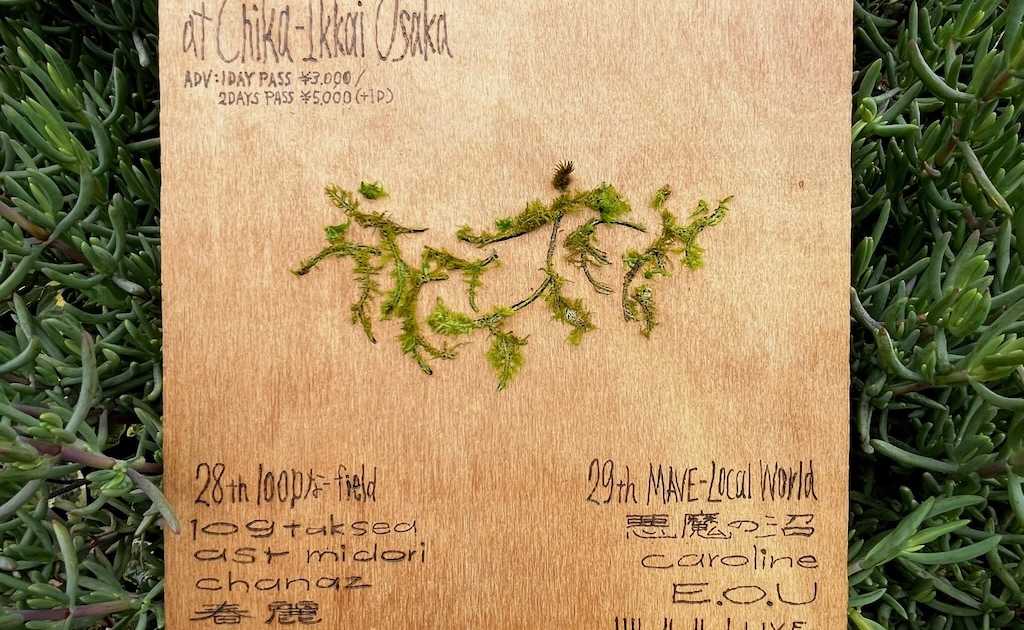 at Chika-Ikkai Osaka
ADV:1DAY PASS ¥3.000/
2DAYS PASS ¥5,000(+1D)
28th loopな-field
109taksea
ast midori
chanaz
春麗
29th MAVE-Local World
悪魔の沼
caroline
E.O.U
LIVE